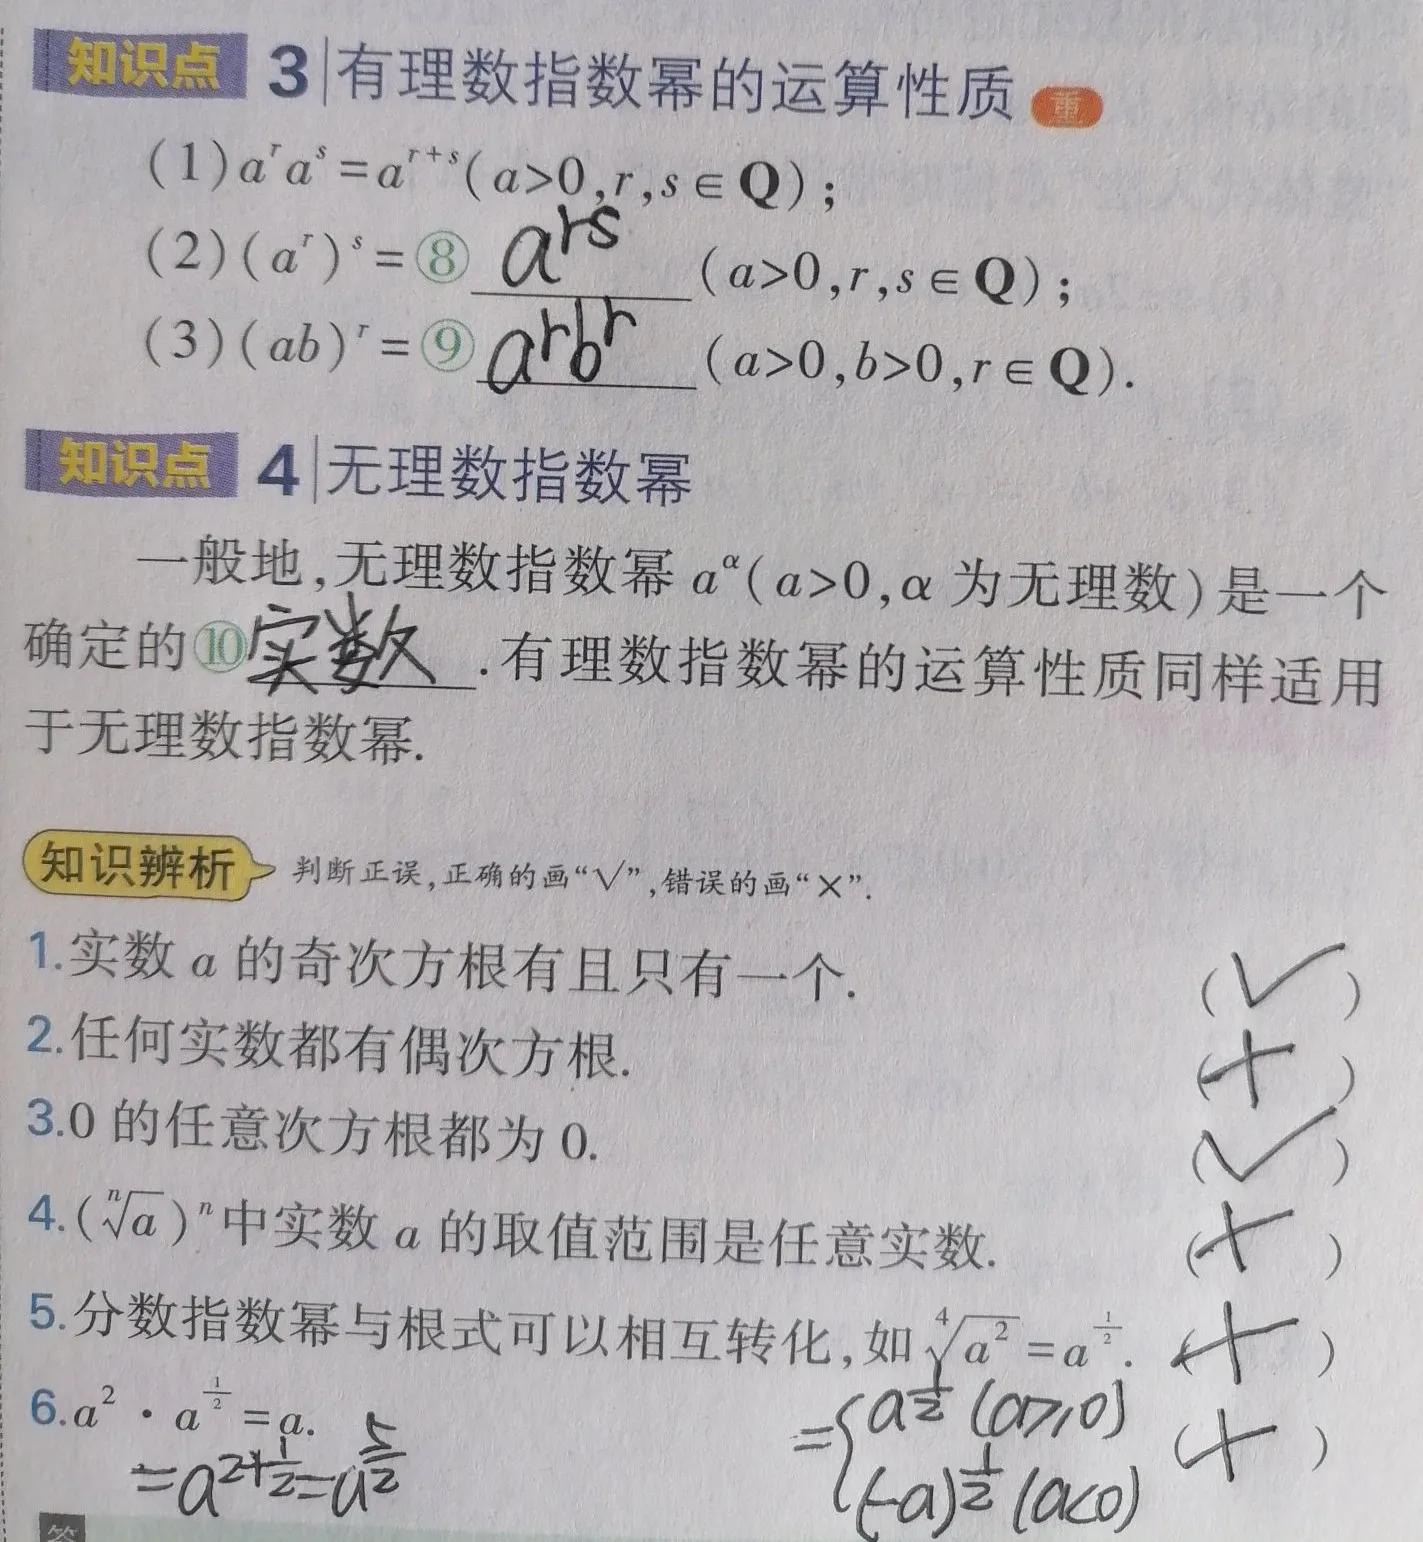 知识点 3 有理数指数幂的运算性质 重
(1)aʳaˢ=aʳ⁺ˢ(a>0,r,s∈Q);
(2)(aʳ)ˢ=⑧ aʳˢ (a>0,r,s∈Q);
(3)(ab)ʳ=⑨ aʳbʳ (a>0,b>0,r∈Q).
知识点 4 无理数指数幂
一般地,无理数指数幂 a^α(a>0,α 为无理数)是一个
确定的⑩实数.有理数指数幂的运算性质同样适用
于无理数指数幂.
知识辨析 判断正误,正确的画“√”,错误的画“×”.
1.实数 a 的奇次方根有且只有一个. (√)
2.任何实数都有偶次方根. (×)
3.0 的任意次方根都为 0. (√)
4.(ⁿ√a)ⁿ中实数 a 的取值范围是任意实数. (×)
5.分数指数幂与根式可以相互转化,如 ⁴√a²=a^(1/2). (×)
6.a²·a^(1/2)=a. (×)
=a^(2+1/2)=a^(5/2)
={a^(1/2) (a≥0)
(-a)^(1/2) (a<0)
答